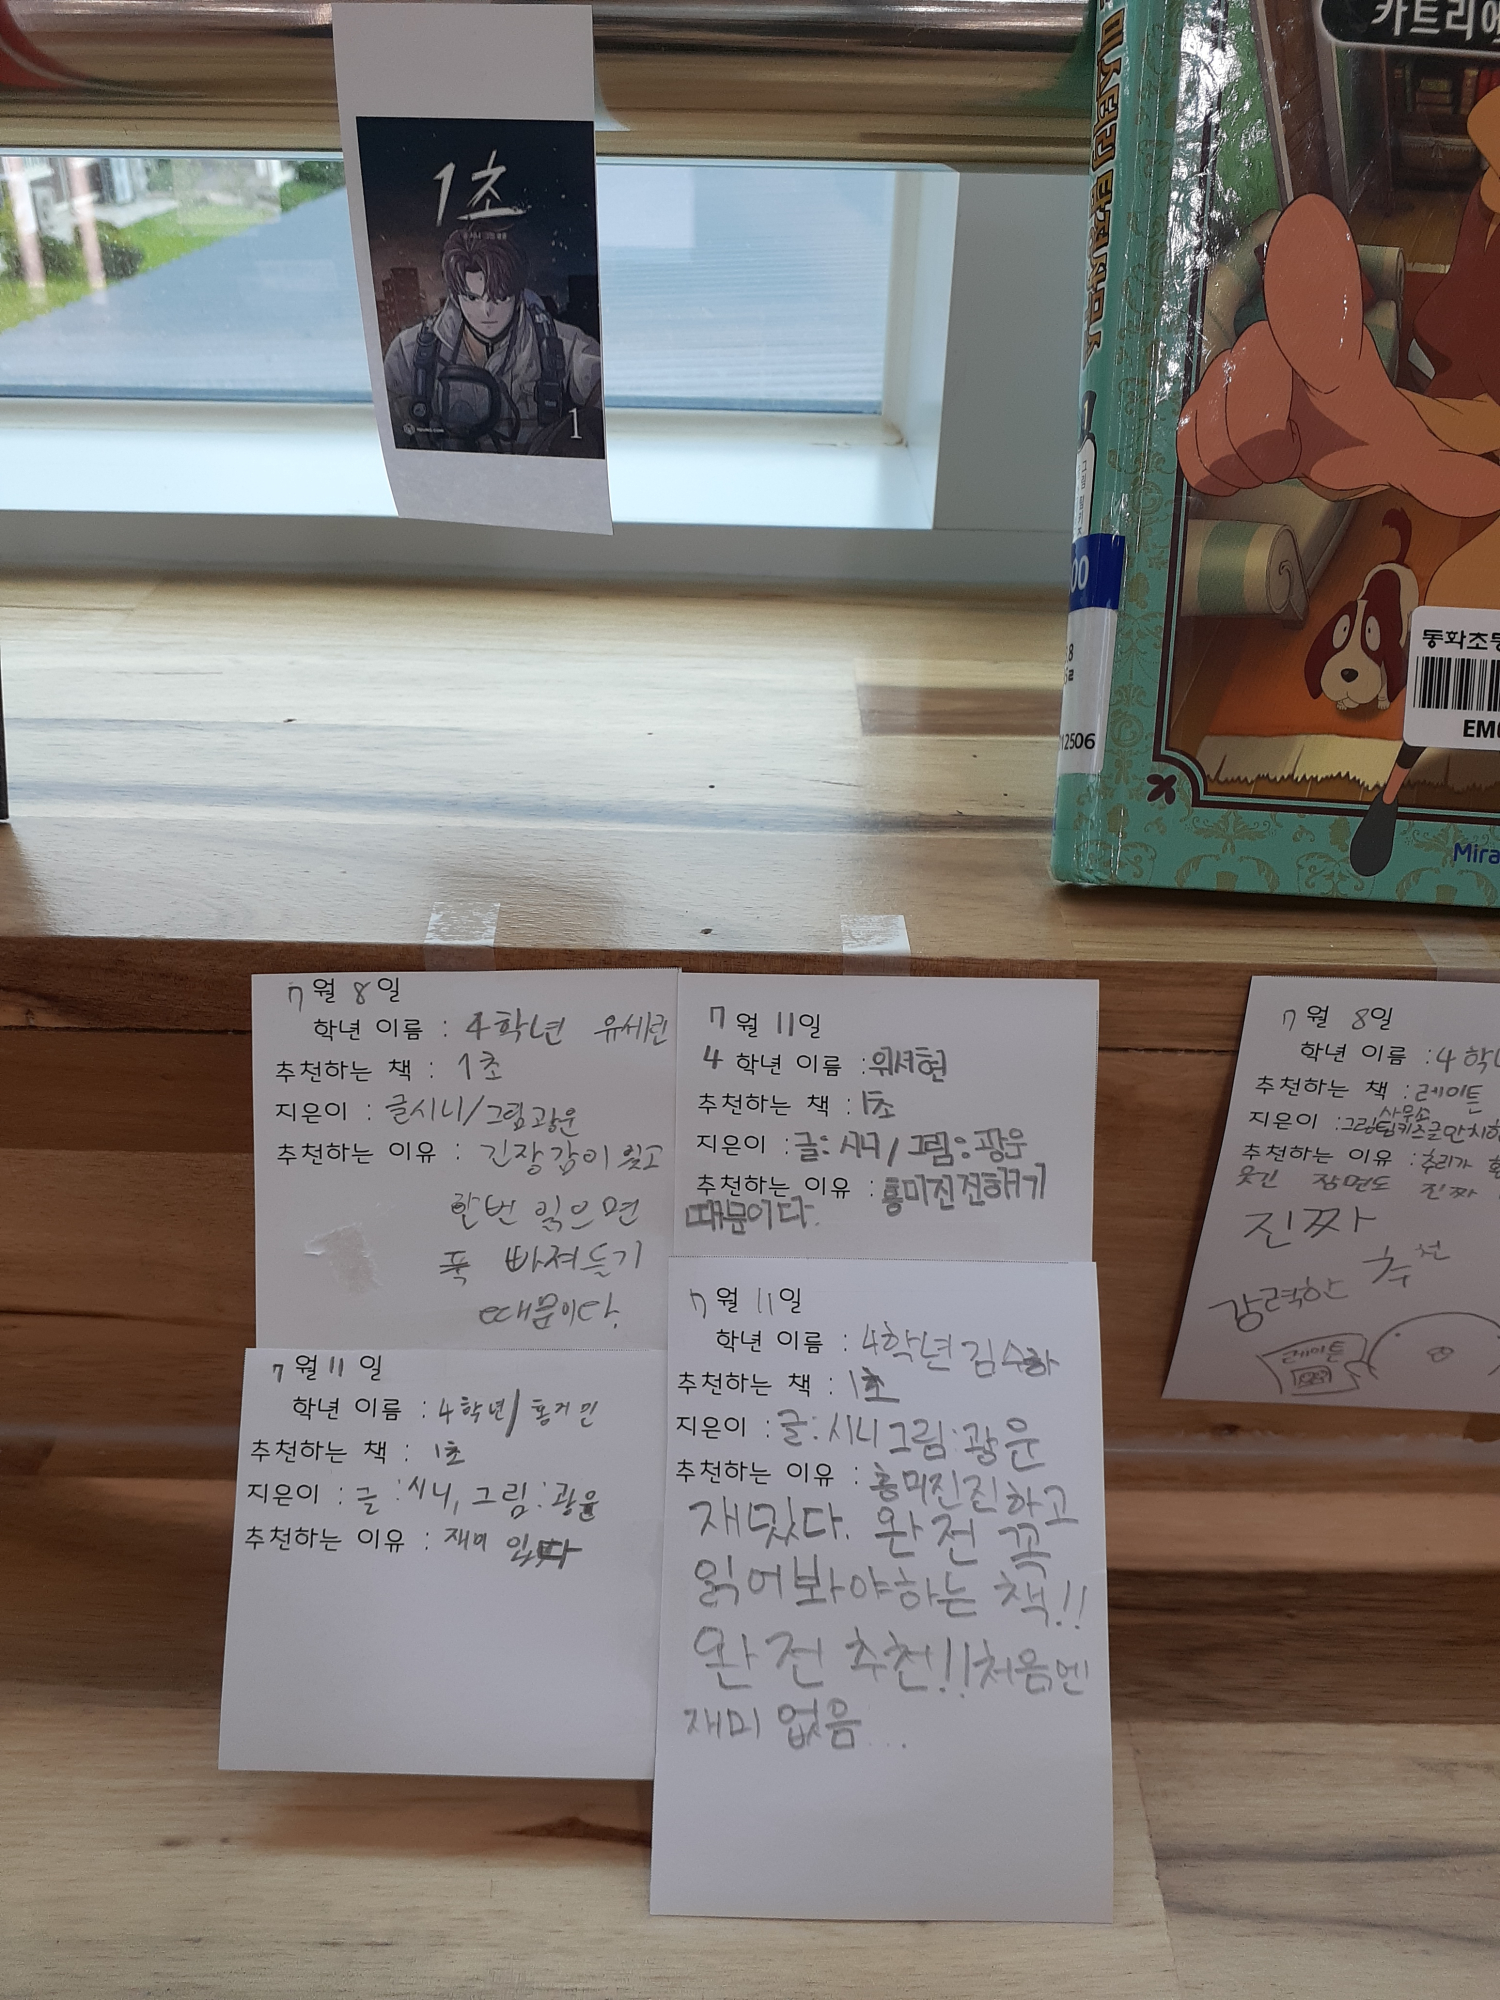 1초
글 시니 그림 광운
1
카트리에
미스터리 탐정사무소
1
00
12506
동화초등
EM0
Mira
7월 8일
학년 이름 : 4학년 유세린
추천하는 책 : 1초
지은이 : 글시니/그림광운
추천하는 이유 : 긴장감이 있고
한번 읽으면
푹 빠져들기
때문이다.
7월 11일
4 학년 이름 : 위서현
추천하는 책 : 1초
지은이 : 글: 시니/그림: 광운
추천하는 이유 : 흥미진진하기
때문이다.
7월 11일
학년 이름 : 4학년/홍거민
추천하는 책 : 1초
지은이 : 글:시니, 그림:광운
추천하는 이유 : 재미 있다
7월 11일
학년 이름 : 4학년 김수하
추천하는 책 : 1초
지은이 : 글:시니 그림:광운
추천하는 이유 : 흥미진진하고
재밌다. 완전 꼭
읽어봐야하는 책!!
완전 추천!!처음엔
재미 없음...
7월 8일
학년 이름 : 4학년
추천하는 책 : 레이튼
사무소
지은이 : 그림팀키즈글만치하
추천하는 이유 : 추리가
웃긴 장면도 진짜
진짜
추천
강력한
레이튼